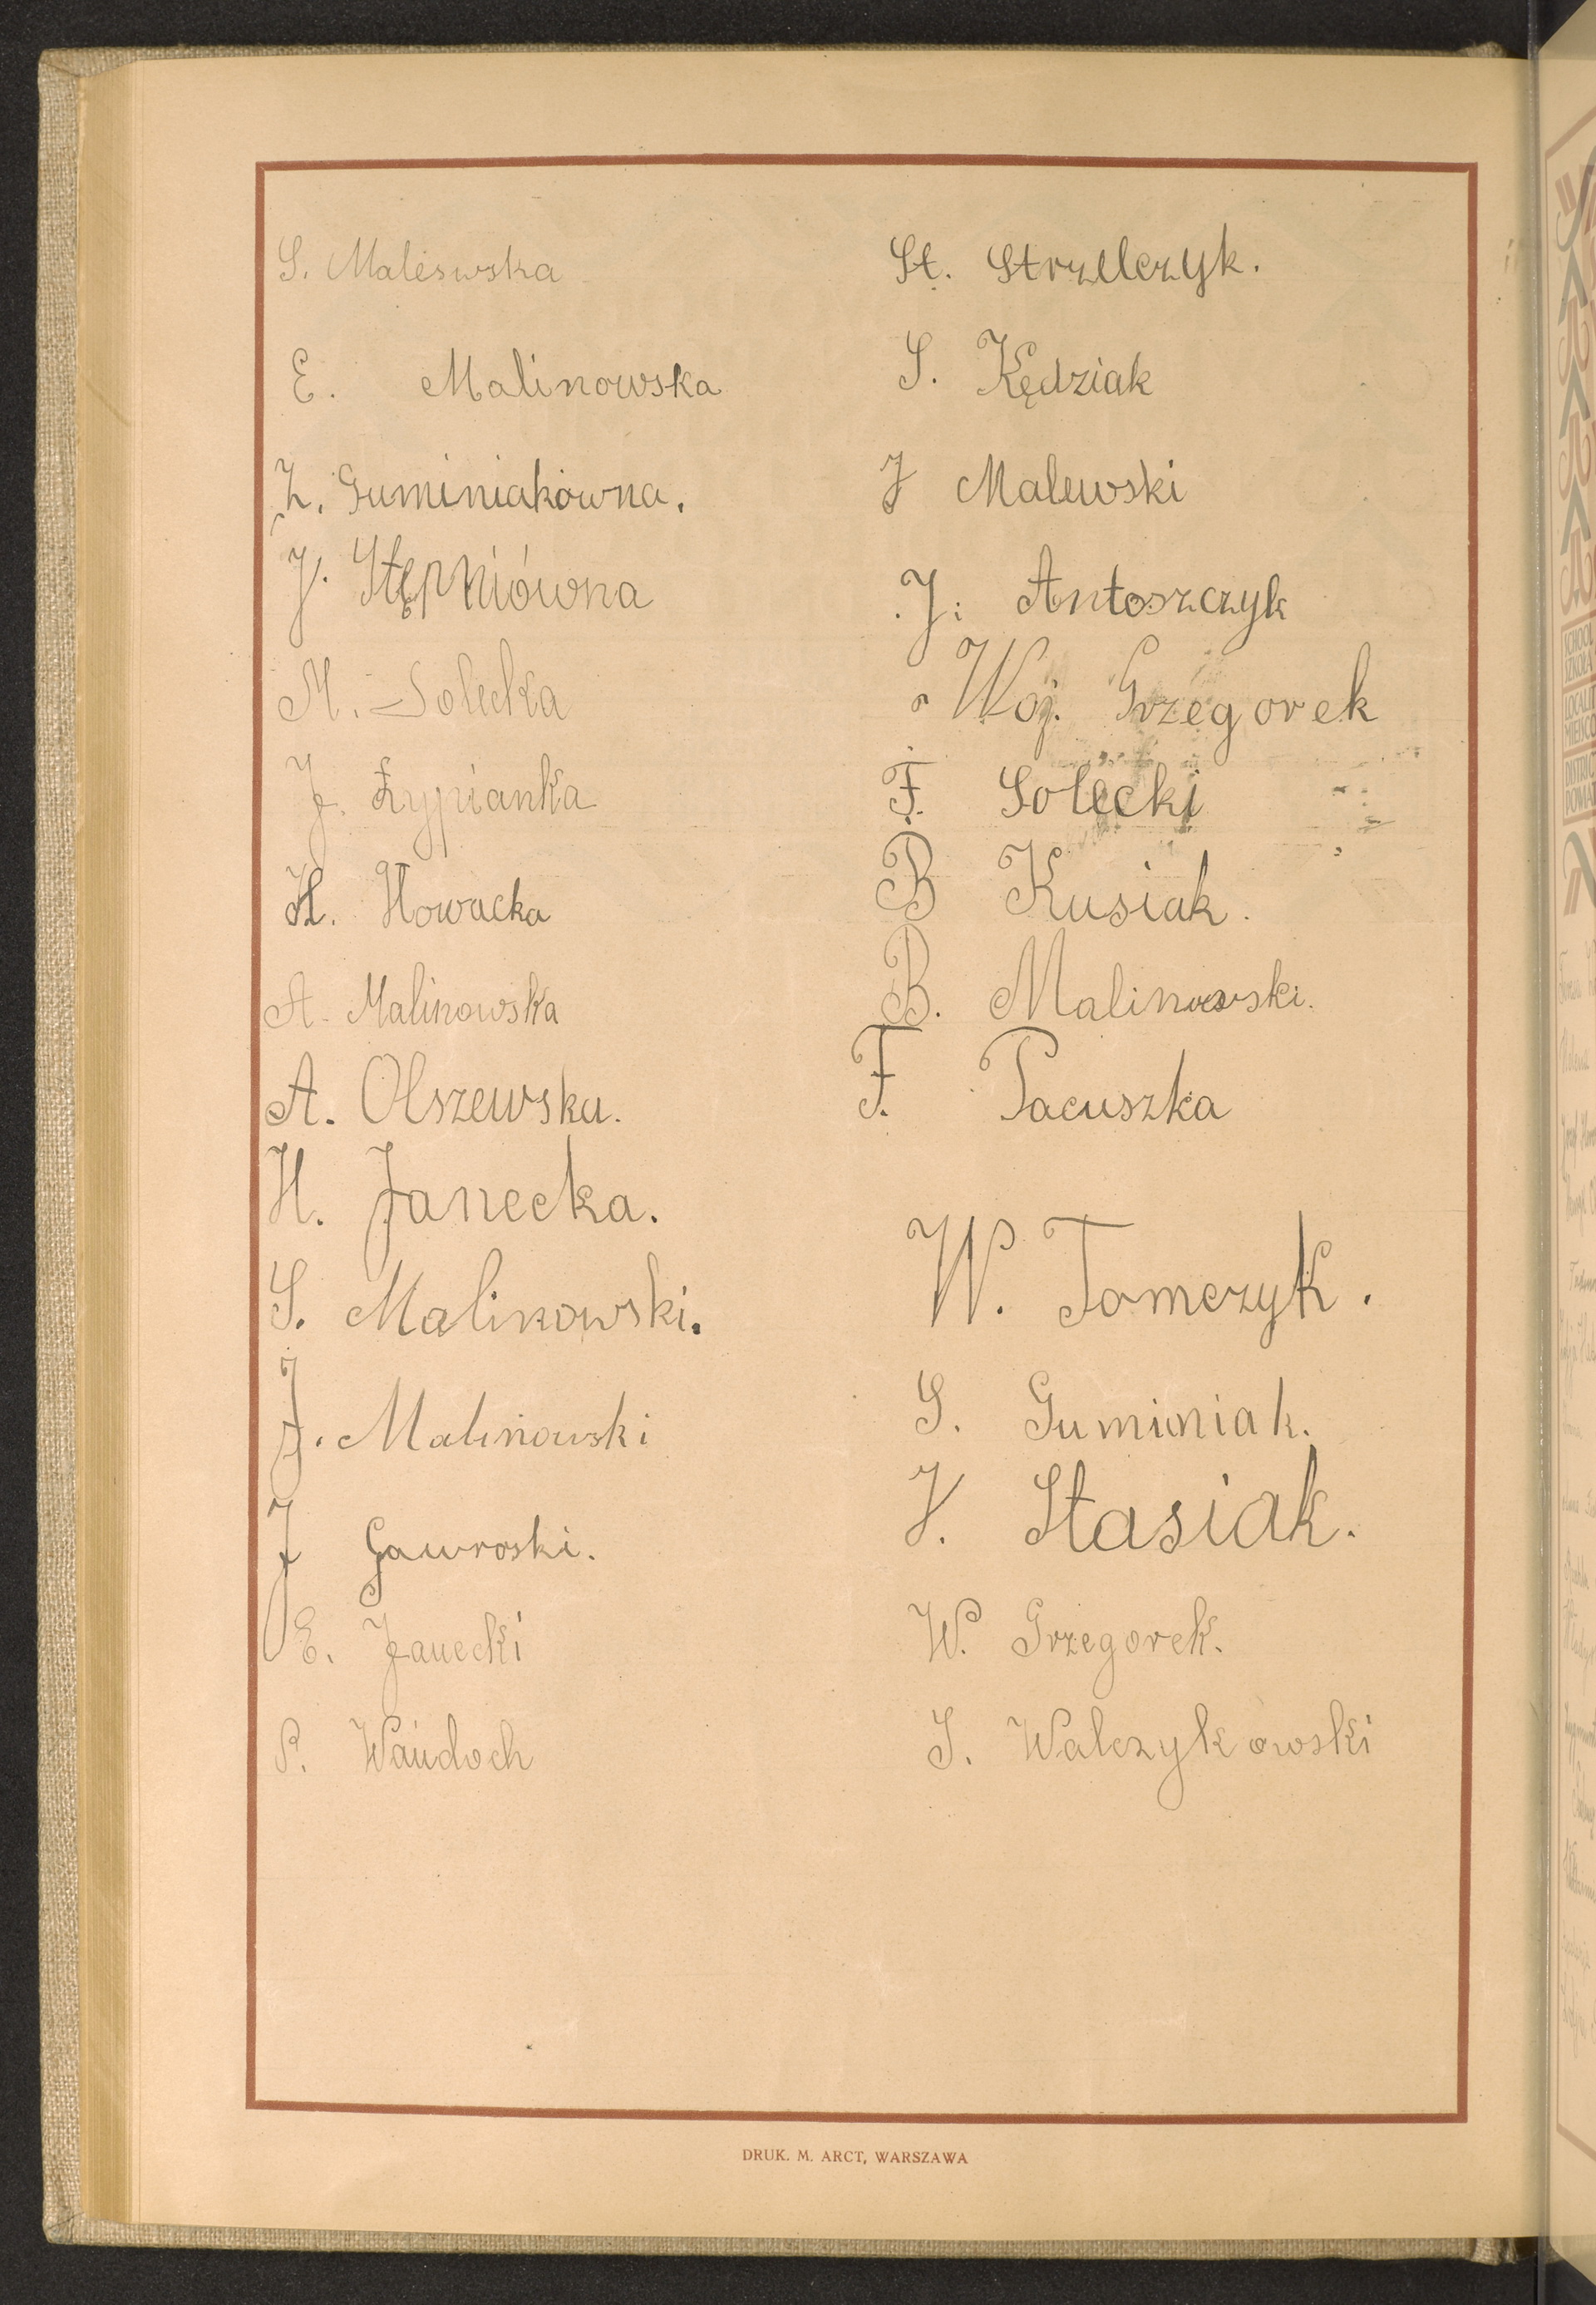 S. Malewska
E. Malinowska
Z. Guminiakówna.
J. Stępniówna
M. Solecka
J. Łypianka
H. Nowacka
A. Malinowska
A. Olszewska.
H. Janecka.
S. Malinowski.
J. Malinowski
J Gawroski.
E. Janecki
P. Wandoch
St. Strzelczyk.
S. Kędziak
J Malewski
J. Antoszczyk
Woj. Grzegorek
F. Solecki
B Kusiak.
B. Malinowski.
F. Pacuszka
W. Tomczyk.
S. Guminiak.
J. Stasiak.
W. Grzegorek.
S. Walczykowski
DRUK. M. ARCT, WARSZAWA